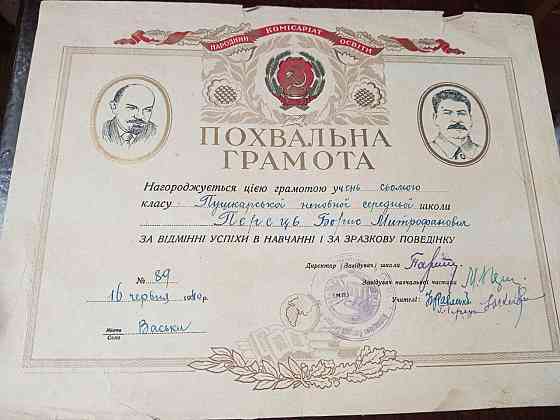 НАРОДНИЙ КОМІСАРІАТ ОСВІТИ
ПОХВАЛЬНА
ГРАМОТА
Нагороджується цією грамотою учень сьомого
класу Пушкарської неповної середньої школи
Борис Митрофанович
ЗА ВІДМІННІ УСПІХИ В НАВЧАННІ І ЗА ЗРАЗКОВУ ПОВЕДІНКУ
Директор (Завідувач) школи
№ 89
Завідувач навчальної частини
16 червня 1940 р.
Учителі:
Місто
Село Васьки